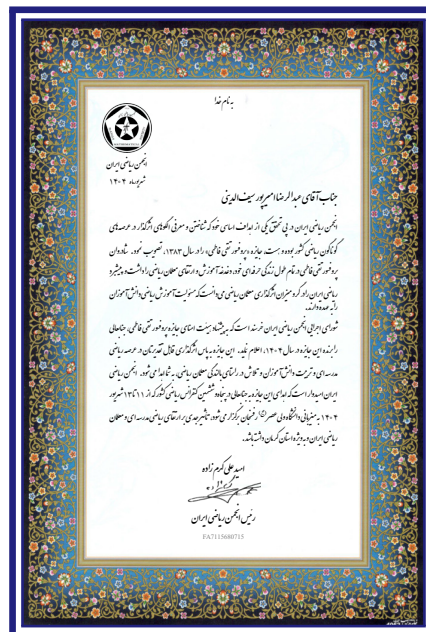 به نام خدا
انجمن ریاضی ایران
شهریورماه ۱۴۰۴
جناب آقای عبدالرضا امیرپور سیف‌الدینی
انجمن ریاضی ایران در پی تحقق یکی از اهداف اساسی خود که شناختن و معرفی الگوهای اثرگذار در عرصه‌های
گوناگون ریاضی کشور بوده و هست، جایزه «پروفسور تقی فاطمی» را در سال ۱۳۸۳، تصویب نمود. شادروان
پروفسور تقی فاطمی در تمام طول زندگی حرفه‌ای خود، دغدغه آموزش و ارتقای معلمان ریاضی را داشت و پیشبرد
ریاضی ایران را در گرو میزان اثرگذاری معلمان ریاضی می‌دانست که مسئولیت آموزش ریاضی دانش‌آموزان
را به عهده دارند.
شورای اجرایی انجمن ریاضی ایران خرسند است که به پیشنهاد هیئت امنای جایزه پروفسور تقی فاطمی، جنابعالی
را برنده این جایزه در سال ۱۴۰۴، اعلام نماید. این جایزه به پاس اثرگذاری قابل تقدیرتان در عرصه ریاضی
مدرسه‌ای و تربیت دانش‌آموزان و تلاش در راستای بالندگی معلمان ریاضی، به شما اهدا می‌شود. انجمن ریاضی
ایران امیدوار است که اهدای این جایزه به جنابعالی در پنجاه و ششمین کنفرانس ریاضی کشور که از ۱۱ تا ۱۳ شهریور
۱۴۰۴ به میزبانی دانشگاه ولی عصر (عج) رفسنجان برگزار می‌شود، تأثیر جدی بر ارتقای ریاضی مدرسه‌ای و معلمان
ریاضی ایران و به ویژه استان کرمان داشته باشد.
امیدعلی کرم‌زاده
رئیس انجمن ریاضی ایران
FA7115680715